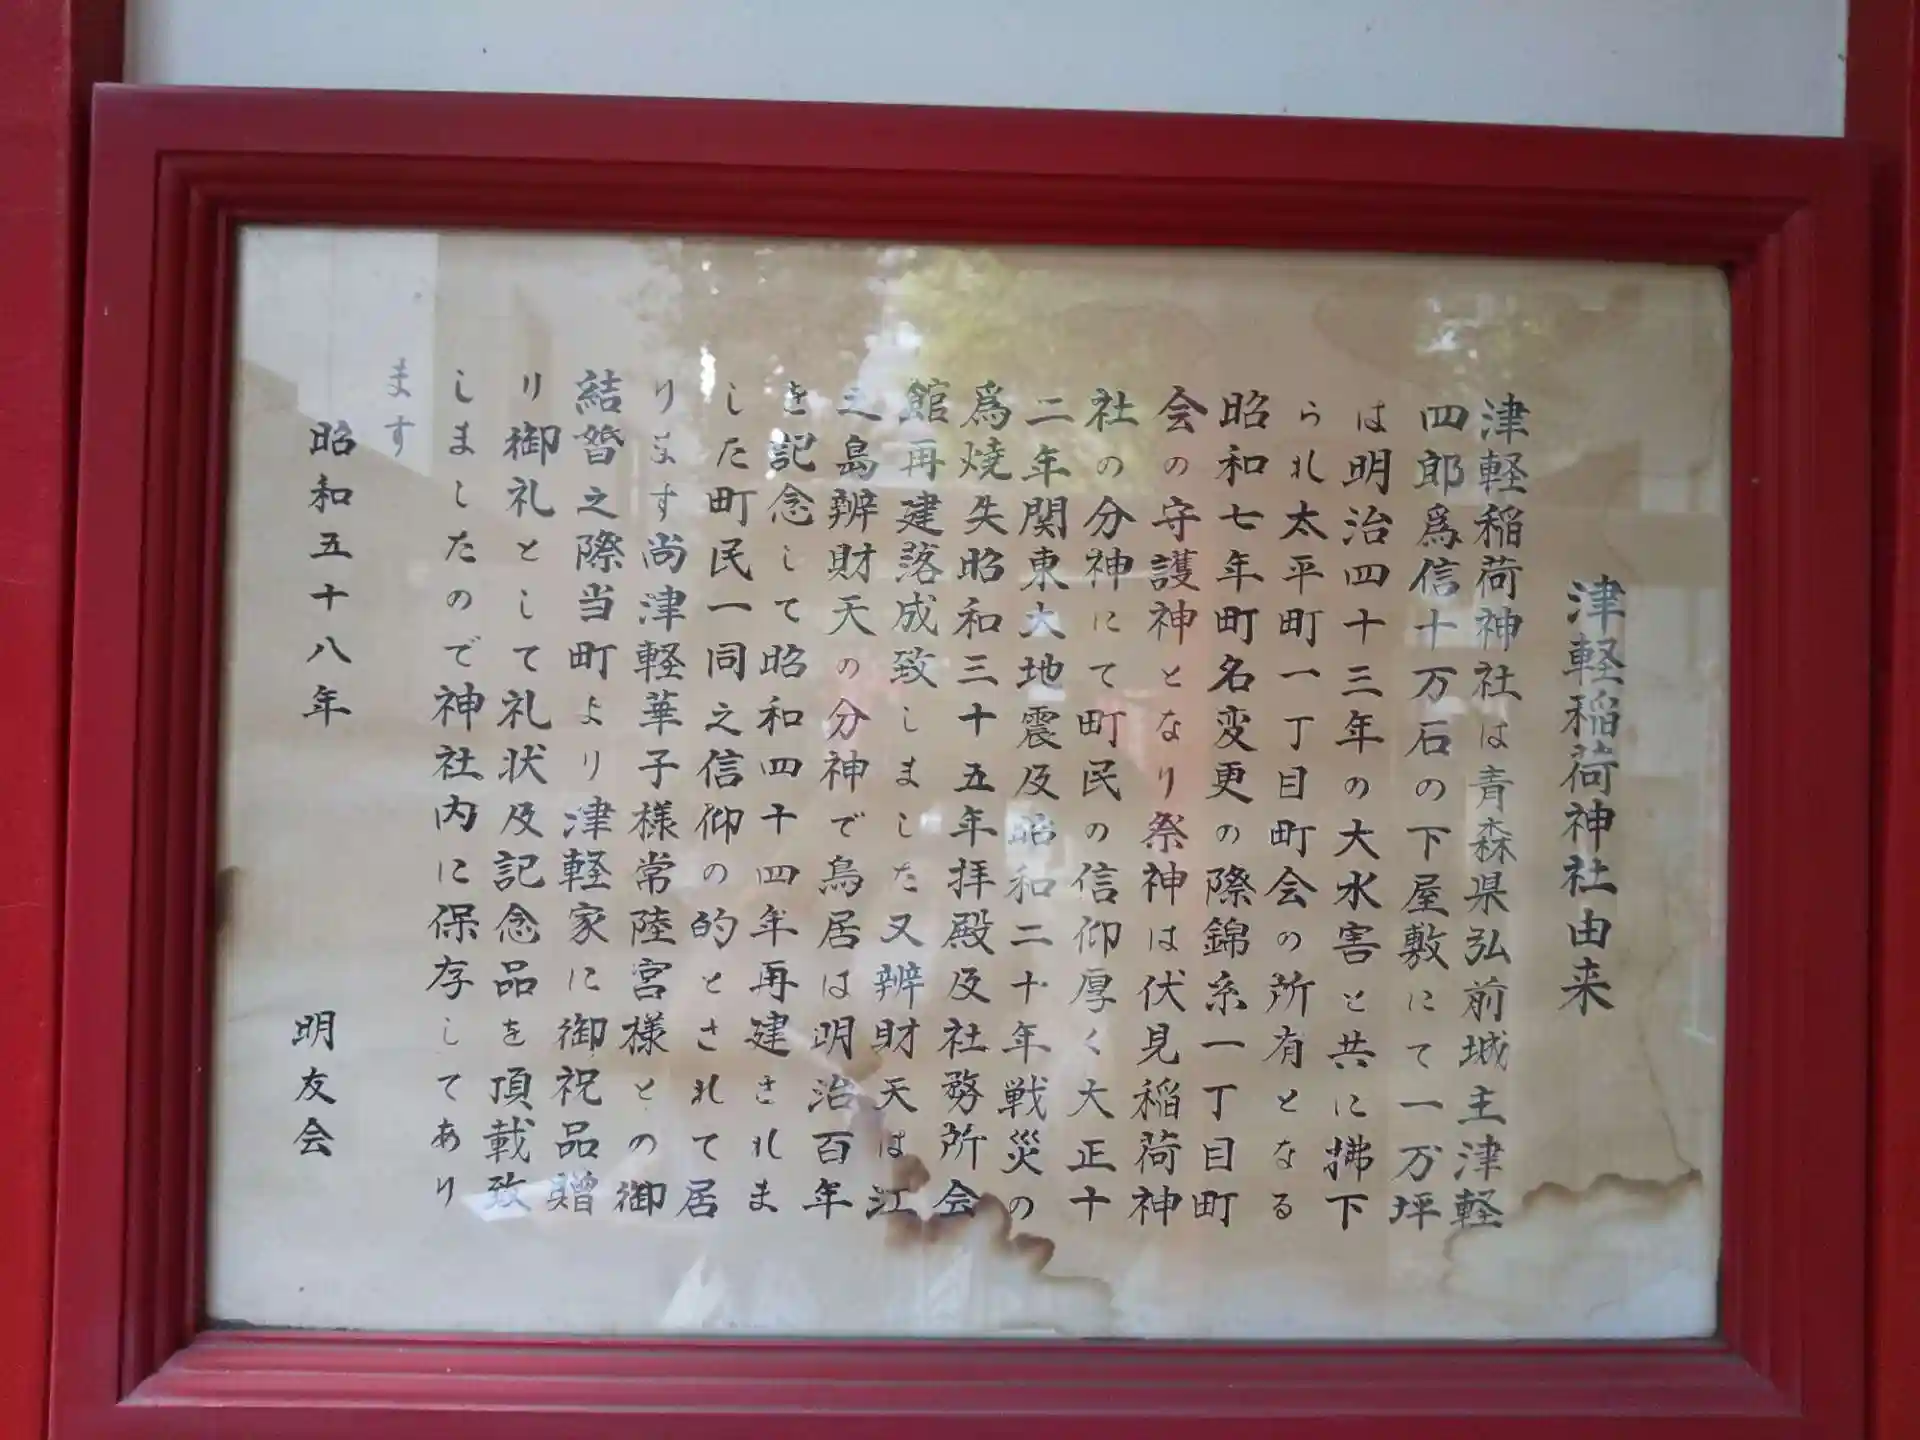 津軽稲荷神社由来
津軽稲荷神社は青森県弘前城主津軽
四郎爲信十万石の下屋敷にて一万坪
は明治四十三年の大水害と共に拂下
られ太平町一丁目町会の所有となる
昭和七年町名変更の際錦糸一丁目町
会の守護神となり祭神は伏見稲荷神
社の分神にて町民の信仰厚く大正十
二年関東大地震及昭和二十年戦災の
爲焼失昭和三十五年拝殿及社務所会
館再建落成致しました又辨財天は江
之島辨財天の分神で鳥居は明治百年
を記念して昭和四十四年再建されま
した町民一同之信仰の的とされて居
ります尚津軽華子様常陸宮様との御
結婚之際当町より津軽家に御祝品贈
り御礼として礼状及記念品を頂載致
しましたので神社内に保存してあり
ます
昭和五十八年
明友会